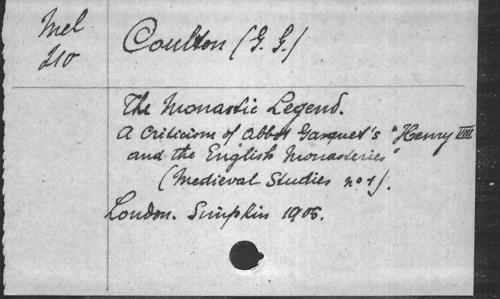 Mel
210
Coulton (G. G.)
The Monastic Legend.
A Criticism of Abbot Gasquet's "Henry VIII
and the English Monasteries"
(Medieval Studies no 1).
London. Simpkin 1905.